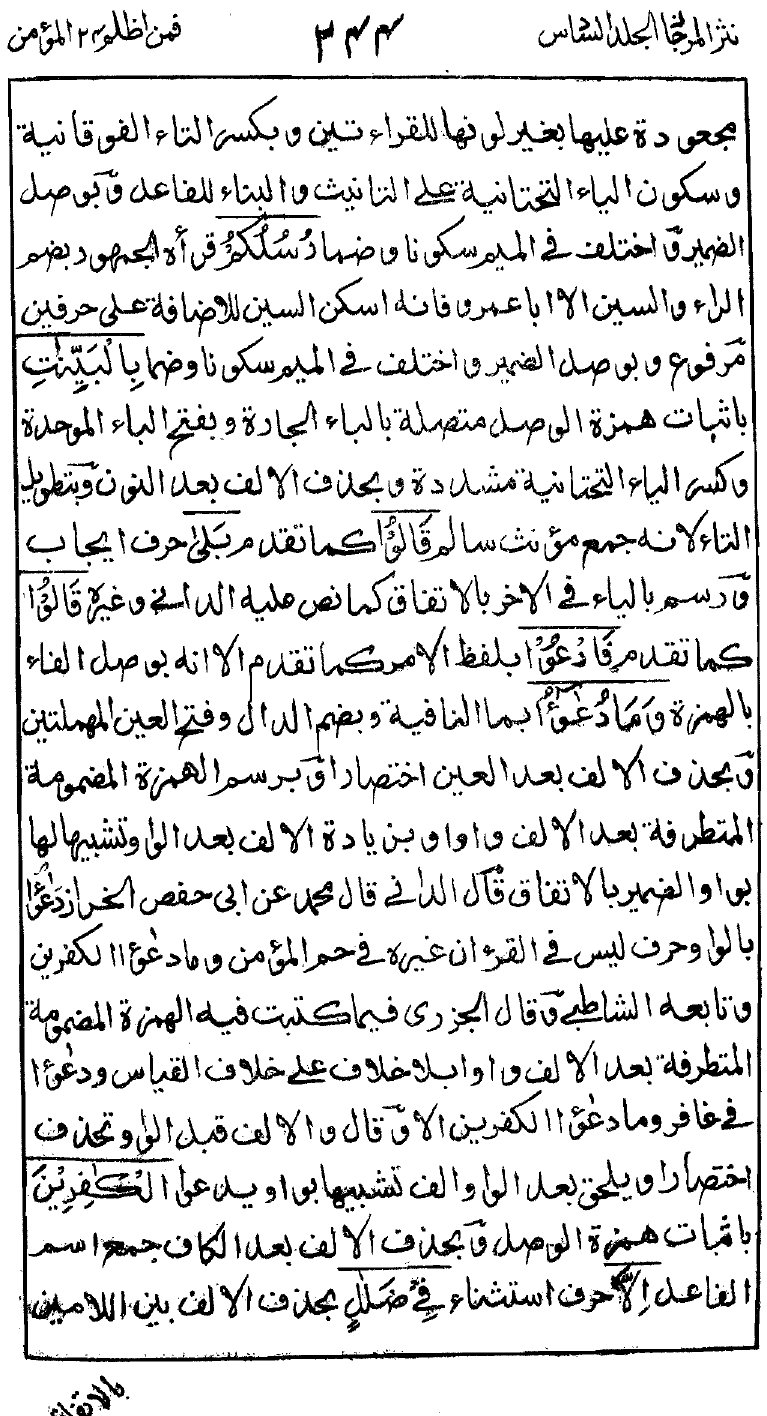 نثر المرجان المجلد السادس ٣٤٤ فمن اظلم ٢٤ المؤمن
مجعودة عليها بغير لونها للقراءتين وبكسر التاء الفوقانية
وسكون الياء التحتانية على التانيث والبناء للفاعل وبوصل
الضمير واختلف في الميم سكونا وضما رُسُلُكُمْ قرأه الجمهور بضم
الراء والسين الا ابا عمرو فانه اسكن السين للاضافة على حرفين
مرفوع وبوصل الضمير واختلف في الميم سكونا وضما بِالْبَيِّنٰتِ
باثبات همزة الوصل متصلة بالباء الجارة وبفتح الباء الموحدة
وكسر الياء التحتانية مشددة وبحذف الالف بعد النون وبتطويل
التاء لانه جمع مؤنث سالم قَالُوْا كما تقدم بَلٰى حرف ايجاب
ورسم بالياء في الاخر بالاتفاق كما نص عليه الداني وغيره قَالُوْا
كما تقدم فَادْعُوْا بلفظ الامر كما تقدم الا انه بوصل الفاء
بالهمزة وَمَا دُعٰٓؤُا بما النافية وبضم الدال وفتح العين المهملتين
وبحذف الالف بعد العين اختصارا وبرسم الهمزة المضمومة
المتطرفة بعد الالف واوا وبزيادة الالف بعد الواو تشبيها لها
بواو الضمير بالاتفاق قال الداني قال محمد عن ابى حفص الخراز دعٰؤا
بالواو حرف ليس في القرءان غيره في حم المؤمن وما دعٰؤا الكفرين
وتابعه الشاطبي وقال الجزرى فيما كتبت فيه الهمزة المضمومة
المتطرفة بعد الالف واوا بلا خلاف على خلاف القياس ودعٰؤا
في غافر وما دعٰؤا الكفرين الا وقال والالف قبل الواو تحذف
اختصارا ويلحق بعد الواو الف تشبيها بواو يدعوا الْكٰفِرِيْنَ
باثبات همزة الوصل وبحذف الالف بعد الكاف جمع اسم
الفاعل اِلَّا حرف استثناء فِيْ ضَلٰلٍ بحذف الالف بين اللامين
بالاتفاق